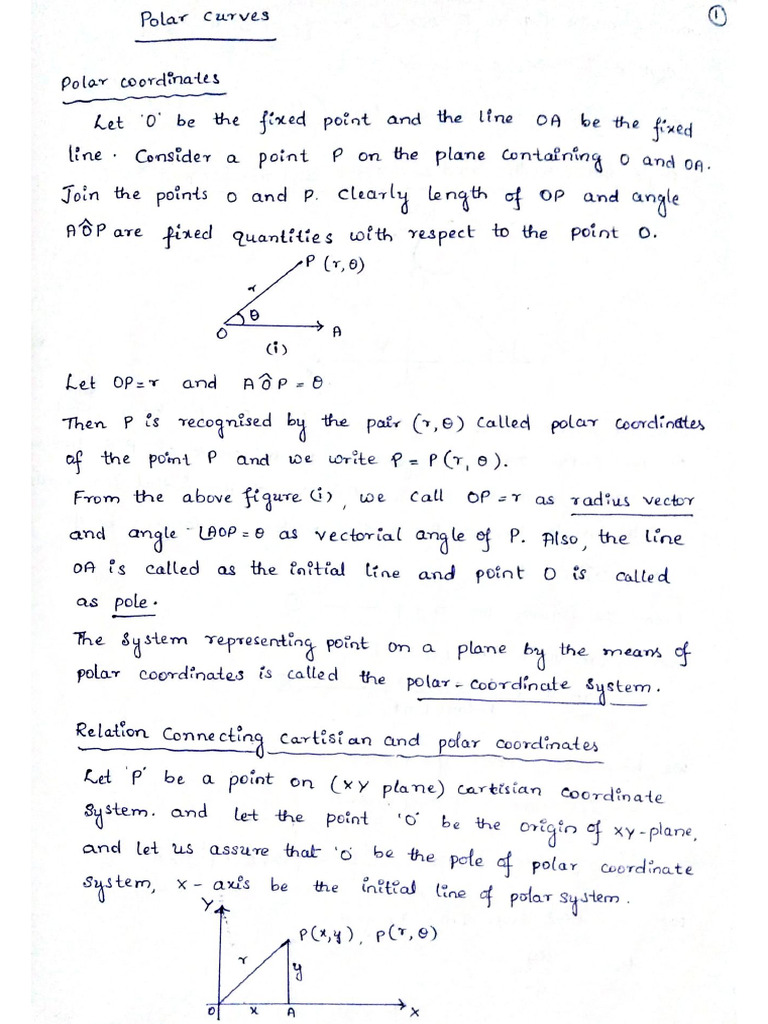 Polar curves
1
Polar coordinates
Let 'O' be the fixed point and the line OA be the fixed
line. Consider a point P on the plane containing O and OA.
Join the points O and P. Clearly length of OP and angle
AÔP are fixed quantities with respect to the point O.
P (r, θ)
r
θ
O
A
(i)
Let OP = r and AÔP = θ
Then P is recognised by the pair (r, θ) called polar coordinates
of the point P and we write P = P(r, θ).
From the above figure (i), we call OP = r as radius vector
and angle ∠AOP = θ as vectorial angle of P. Also, the line
OA is called as the initial line and point O is called
as pole.
The system representing point on a plane by the means of
polar coordinates is called the polar-coordinate system.
Relation Connecting cartisian and polar coordinates
Let 'P' be a point on (XY plane) cartisian coordinate
system. and let the point 'O' be the origin of xy-plane,
and let us assure that 'O' be the pole of polar coordinate
system, x-axis be the initial line of polar system.
Y
P(x,y), P(r,θ)
r
y
O
x
A
X